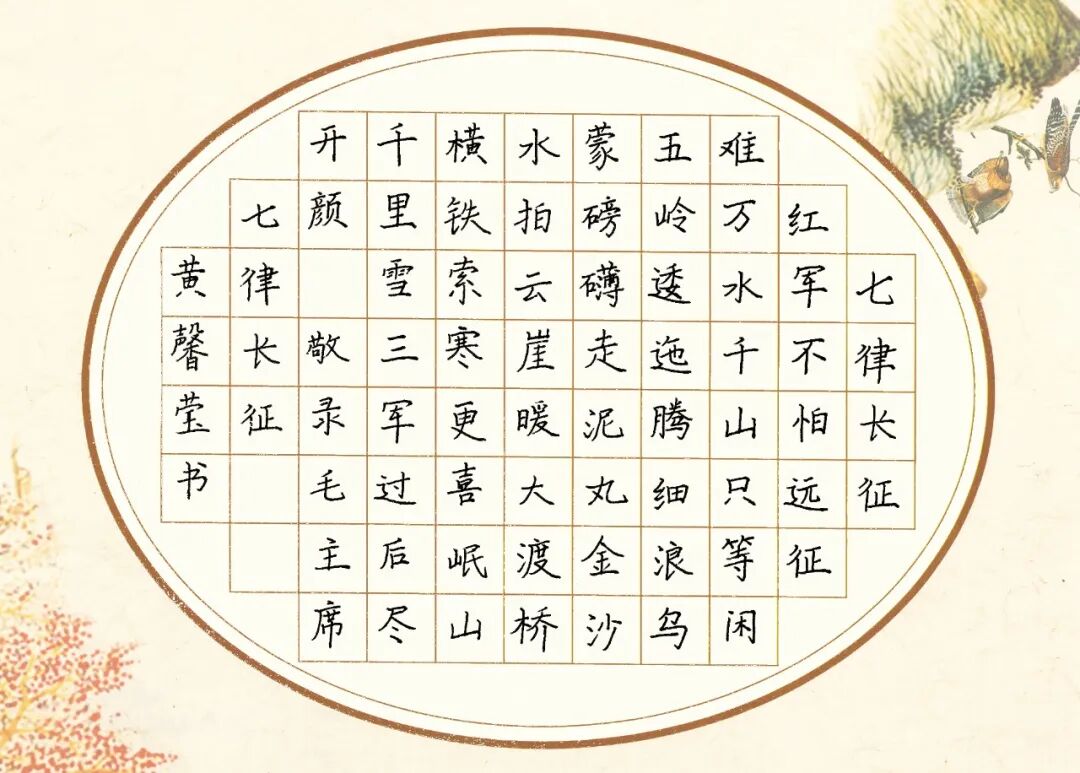 七律长征
红军不怕远征
难万水千山只等闲
五岭逶迤腾细浪乌
蒙磅礴走泥丸金沙
水拍云崖暖大渡桥
横铁索寒更喜岷山
千里雪三军过后尽
开颜 敬录毛主席
七律长征
黄馨莹书